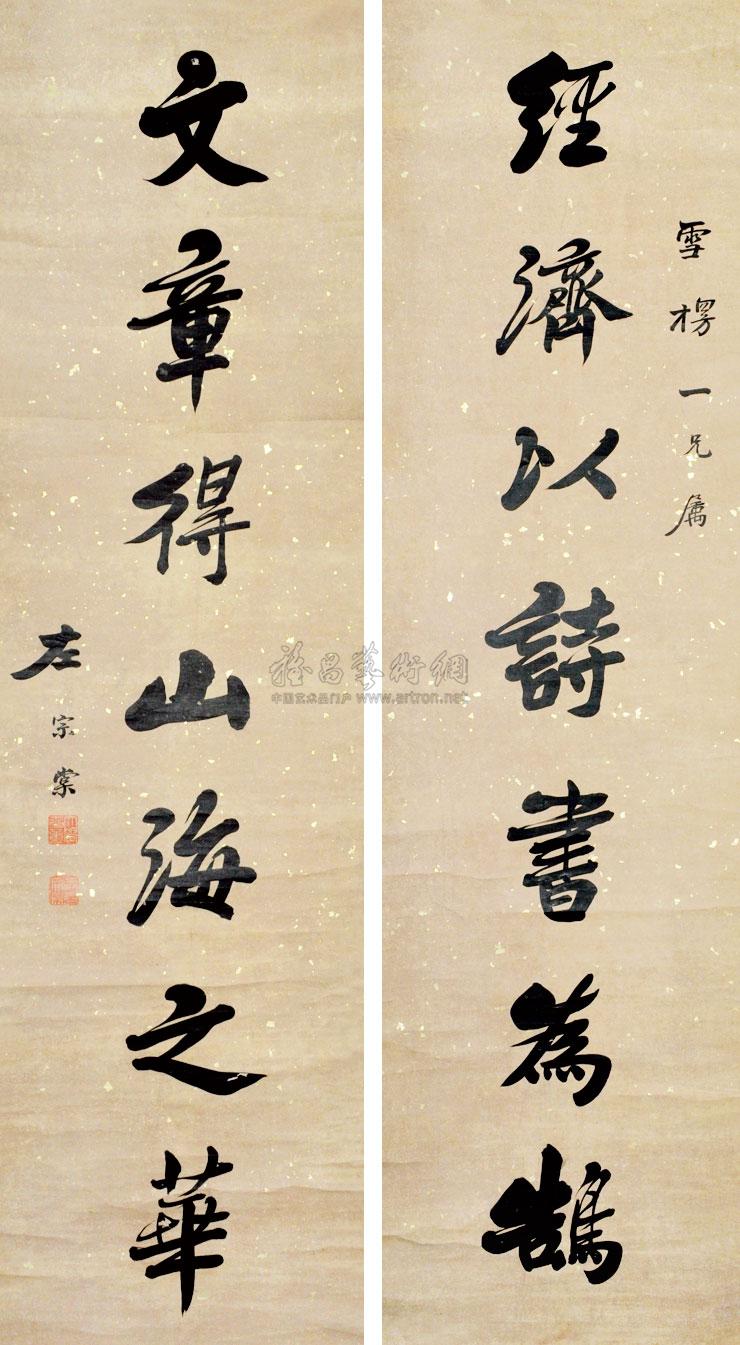 雪楞一兄屬
經濟以詩書為鵠
文章得山海之華
左宗棠
雅昌藝術網
中国艺术品门户 www.artron.net